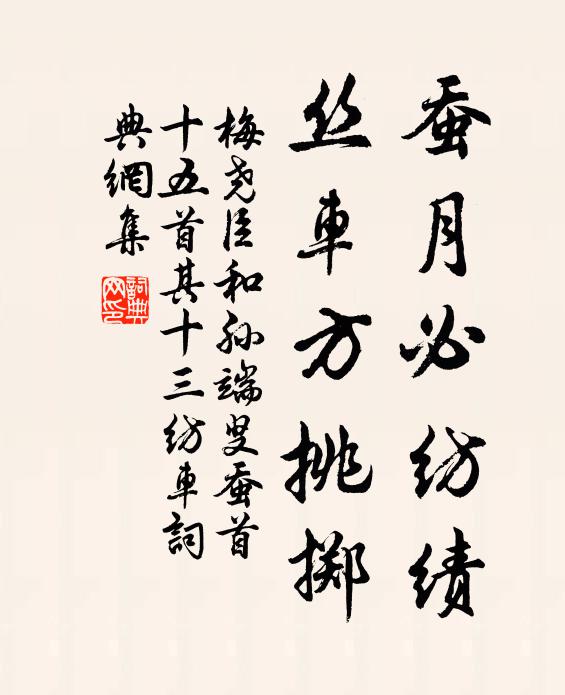 蚕月必纺绩
丝車方挑掷
梅尧臣和孙端叟蚕首
十五首其十三纺車詞
典網集
詞典網印